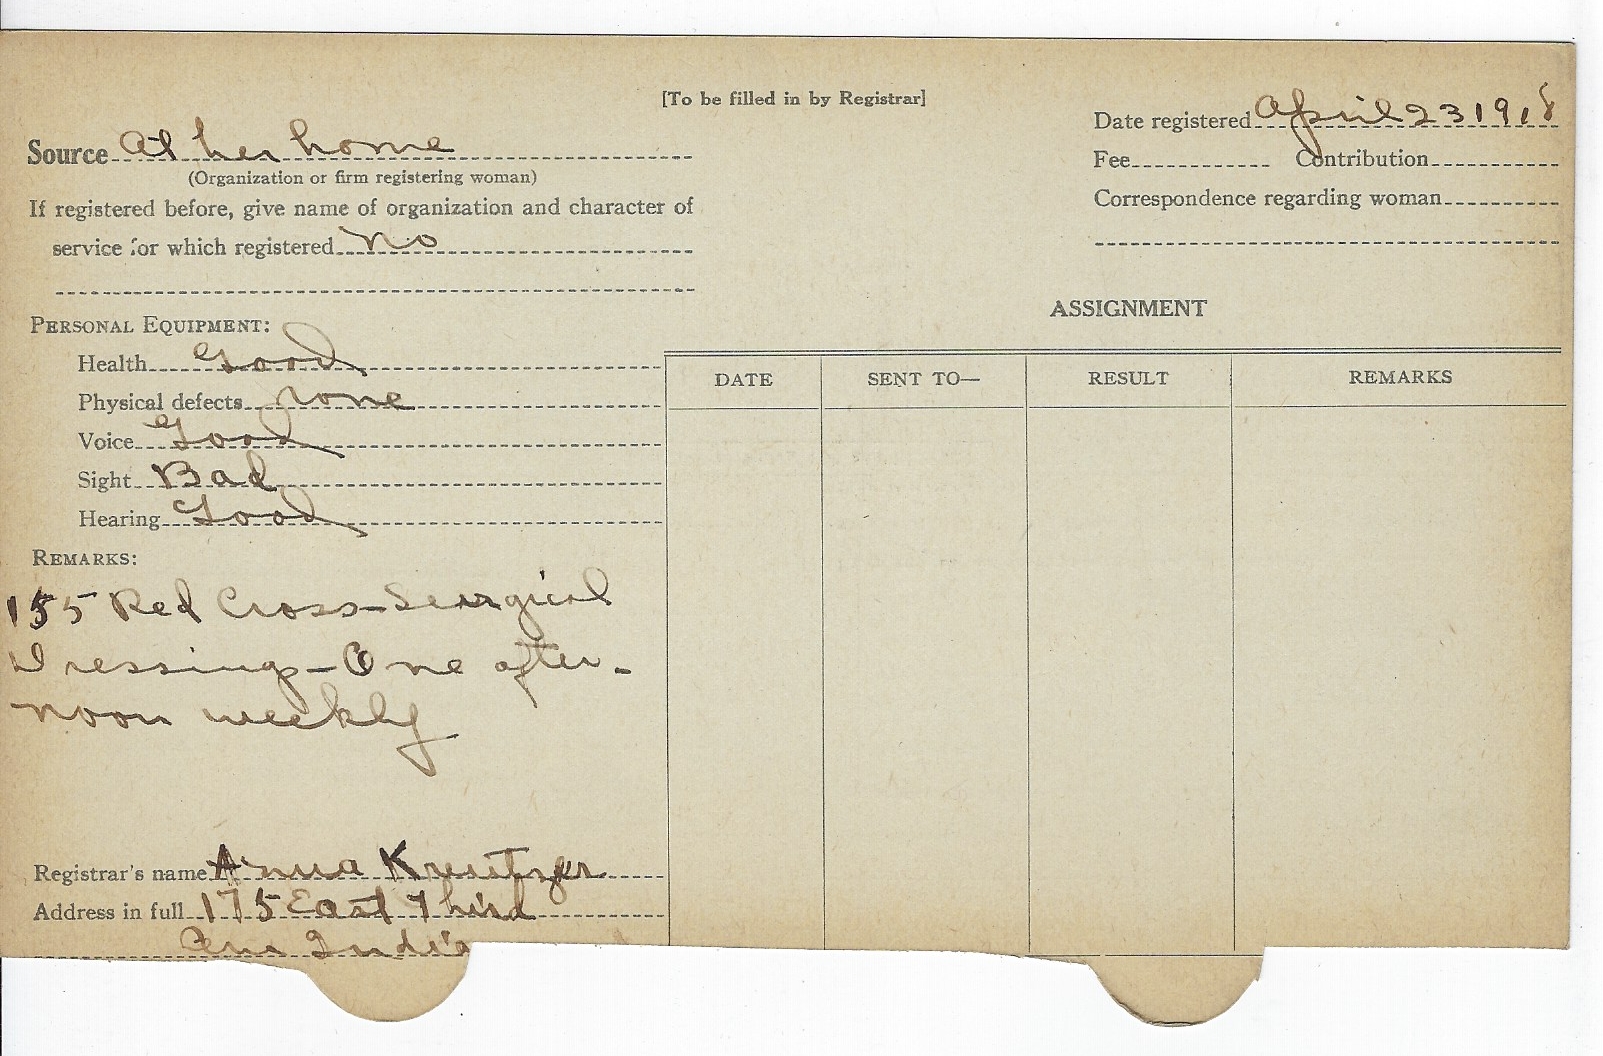 [To be filled in by Registrar]
Date registered April 23 1918
Source At her home
(Organization or firm registering woman)
Fee Contribution
If registered before, give name of organization and character of
Correspondence regarding woman
service for which registered No
ASSIGNMENT
PERSONAL EQUIPMENT:
Health Good
DATE SENT TO— RESULT REMARKS
Physical defects None
Voice Good
Sight Bad
Hearing Good
REMARKS:
155 Red Cross-Seurgical
Dressings-One after-
noon weekly
Registrar's name Anna Kreutzer
Address in full 175 East Third